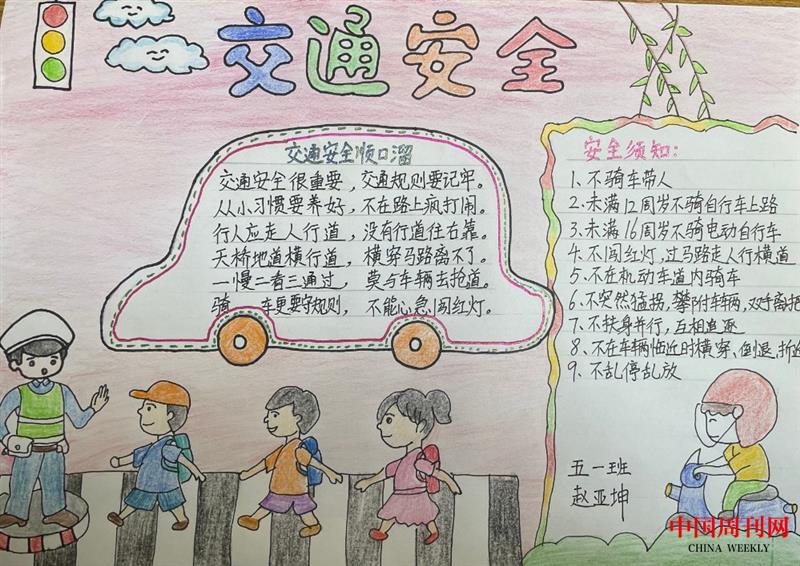 交通安全
交通安全顺口溜
交通安全很重要，交通规则要记牢。
从小习惯要养好，不在路上疯打闹。
行人应走人行道，没有行道往右靠。
天桥地道横行道，横穿马路离不了。
一慢二看三通过，莫与车辆去抢道。
骑 车更要守规则，不能心急闯红灯。
安全须知：
1、不骑车带人
2、未满12周岁不骑自行车上路
3、未满16周岁不骑电动自行车
4、不闯红灯，过马路走人行横道
5、不在机动车道内骑车
6、不突然猛拐，攀附车辆，双手离把
7、不扶身并行，互相追逐
8、不在车辆临近时横穿、倒退、折
9、不乱停乱放
五一班
赵亚坤
中国周刊网
CHINA WEEKLY